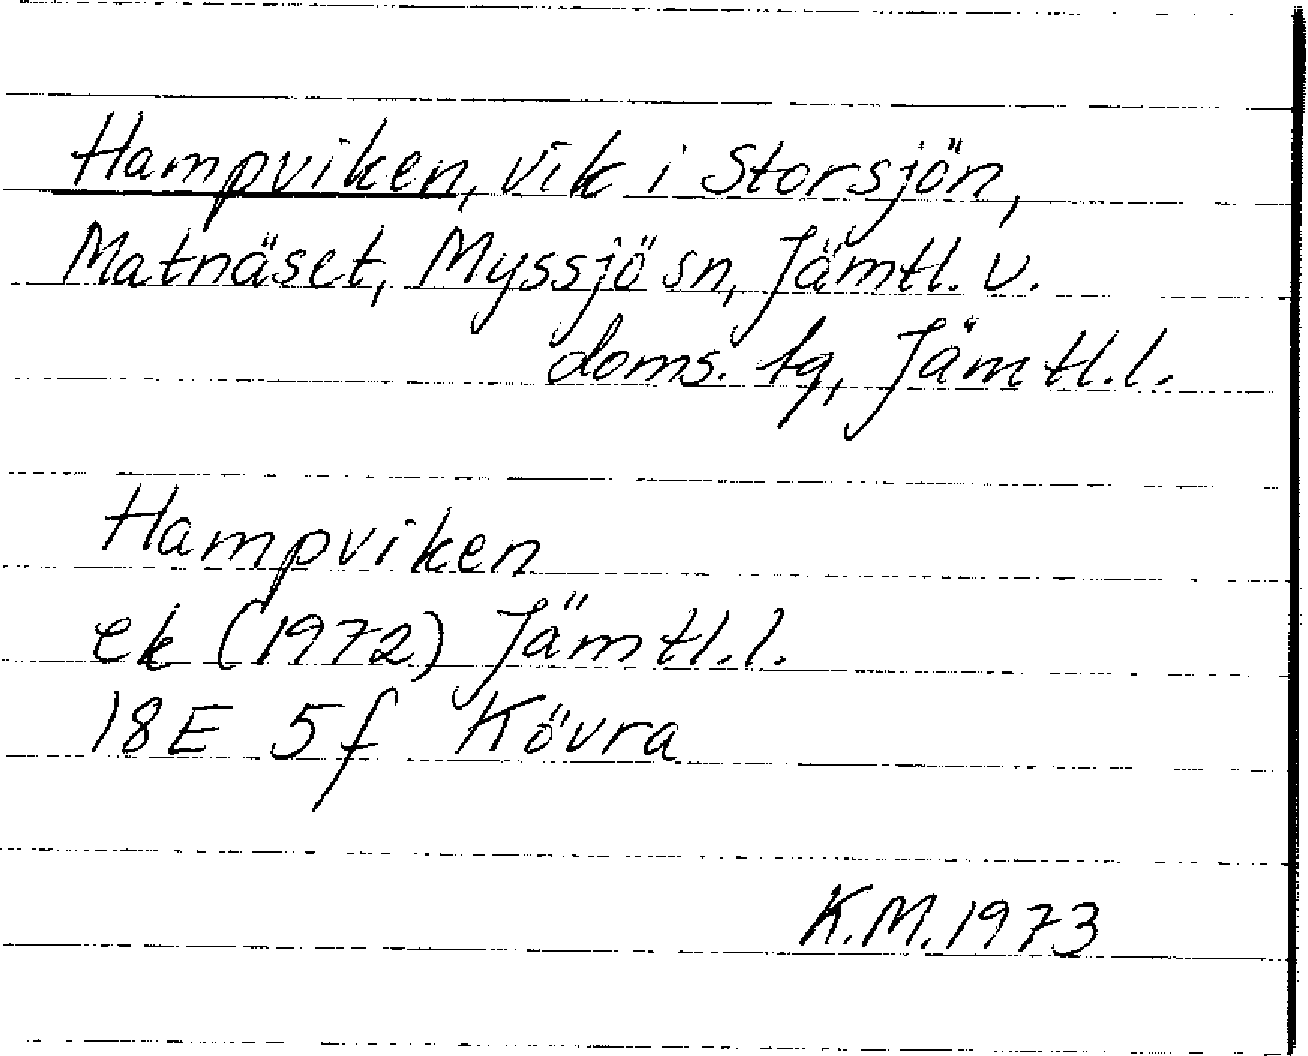 Hampviken, vik i Storsjön,
Matnäset, Myssjö sn, Jämtl. v.
doms. tg, Jämtl.l.
Hampviken
ek (1972) Jämtl.l.
18E 5f Kövra
K.M.1973